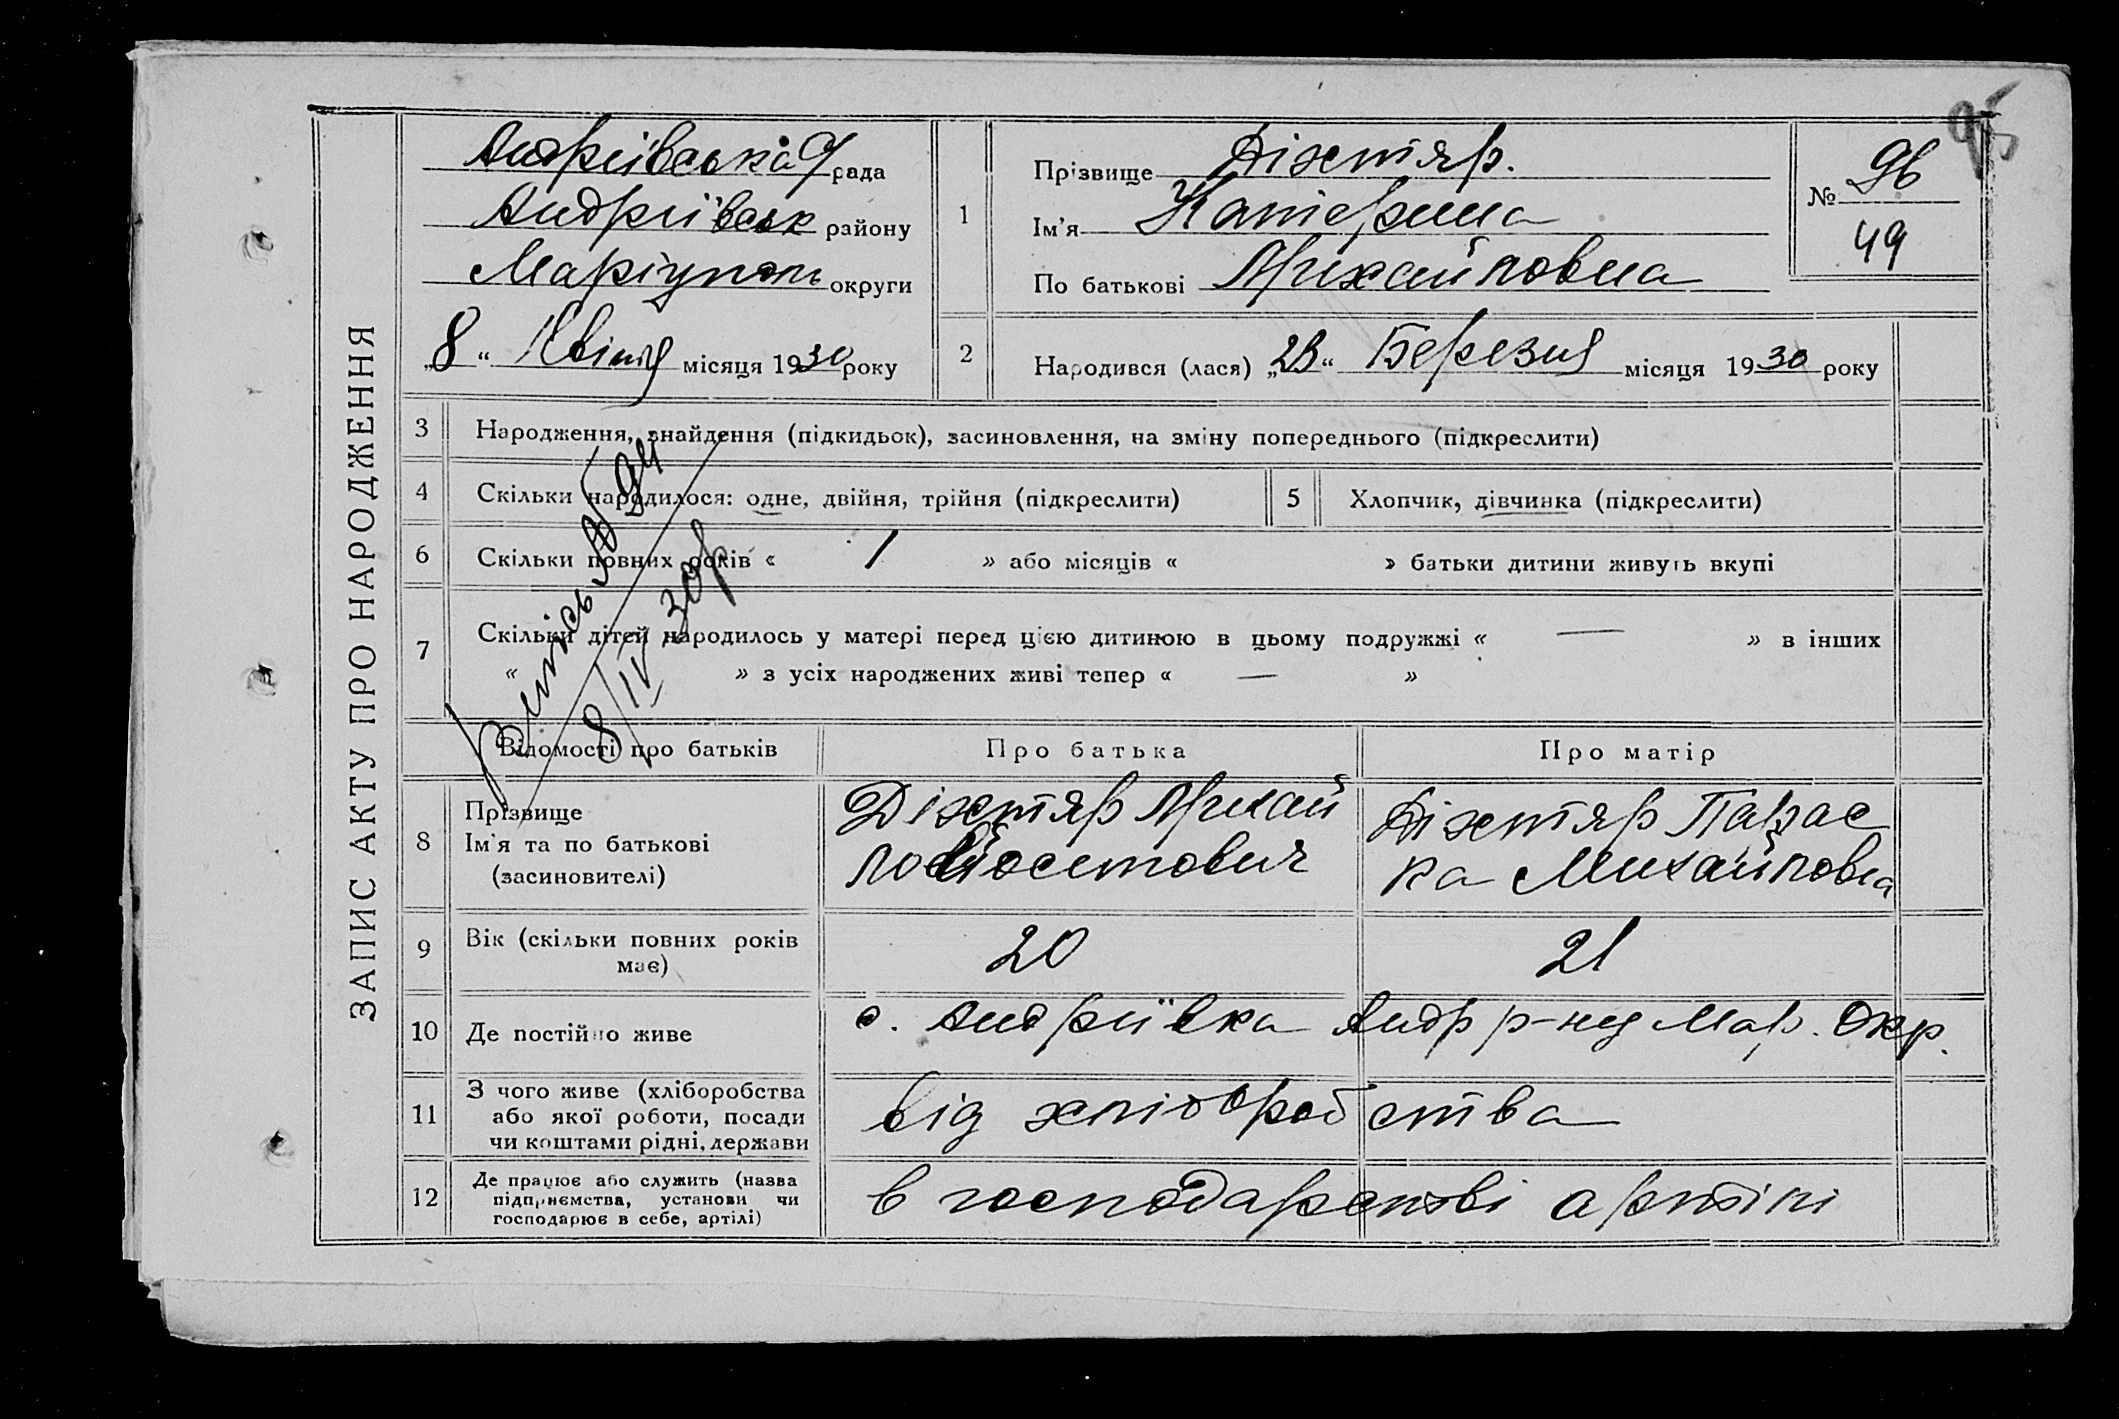 95
ЗАПИС АКТУ ПРО НАРОДЖЕННЯ
Андріївська рада
Андріївськ району
Маріупольськ округи
„8“ Квітня місяця 1930 року
1
Прізвище Діхтяр.
Ім'я Катерина
По батькові Михайловна
№ 96
49
2
Народився (лася) „23“ Березня місяця 1930 року
3 Народження, знайдення (підкидьок), засиновлення, на зміну попереднього (підкреслити)
4 Скільки народилося: одне, двійня, трійня (підкреслити)
5 Хлопчик, дівчинка (підкреслити)
6 Скільки повних років « 1 » або місяців « » батьки дитини живуть вкупі
7 Скільки дітей народилось у матері перед цією дитиною в цьому подружжі « — » в інших
« » з усіх народжених живі тепер « — »
Випись № 94
8/IV 30р
Відомості про батьків
Про батька
Про матір
8
Прізвище
Ім'я та по батькові
(засиновителі)
Діхтяр Михай
ло
Діхтяр Парас
ка Михайловна
9
Вік (скільки повних років
має)
20
21
10 Де постійно живе
с. Андріївка Андр р-ну Мар. Окр.
11
З чого живе (хліборобства
або якої роботи, посади
чи коштами рідні, держави
від хліборобства
12
Де працює або служить (назва
підприємства, установи чи
господарює в себе, артілі)
в господарстві артілі